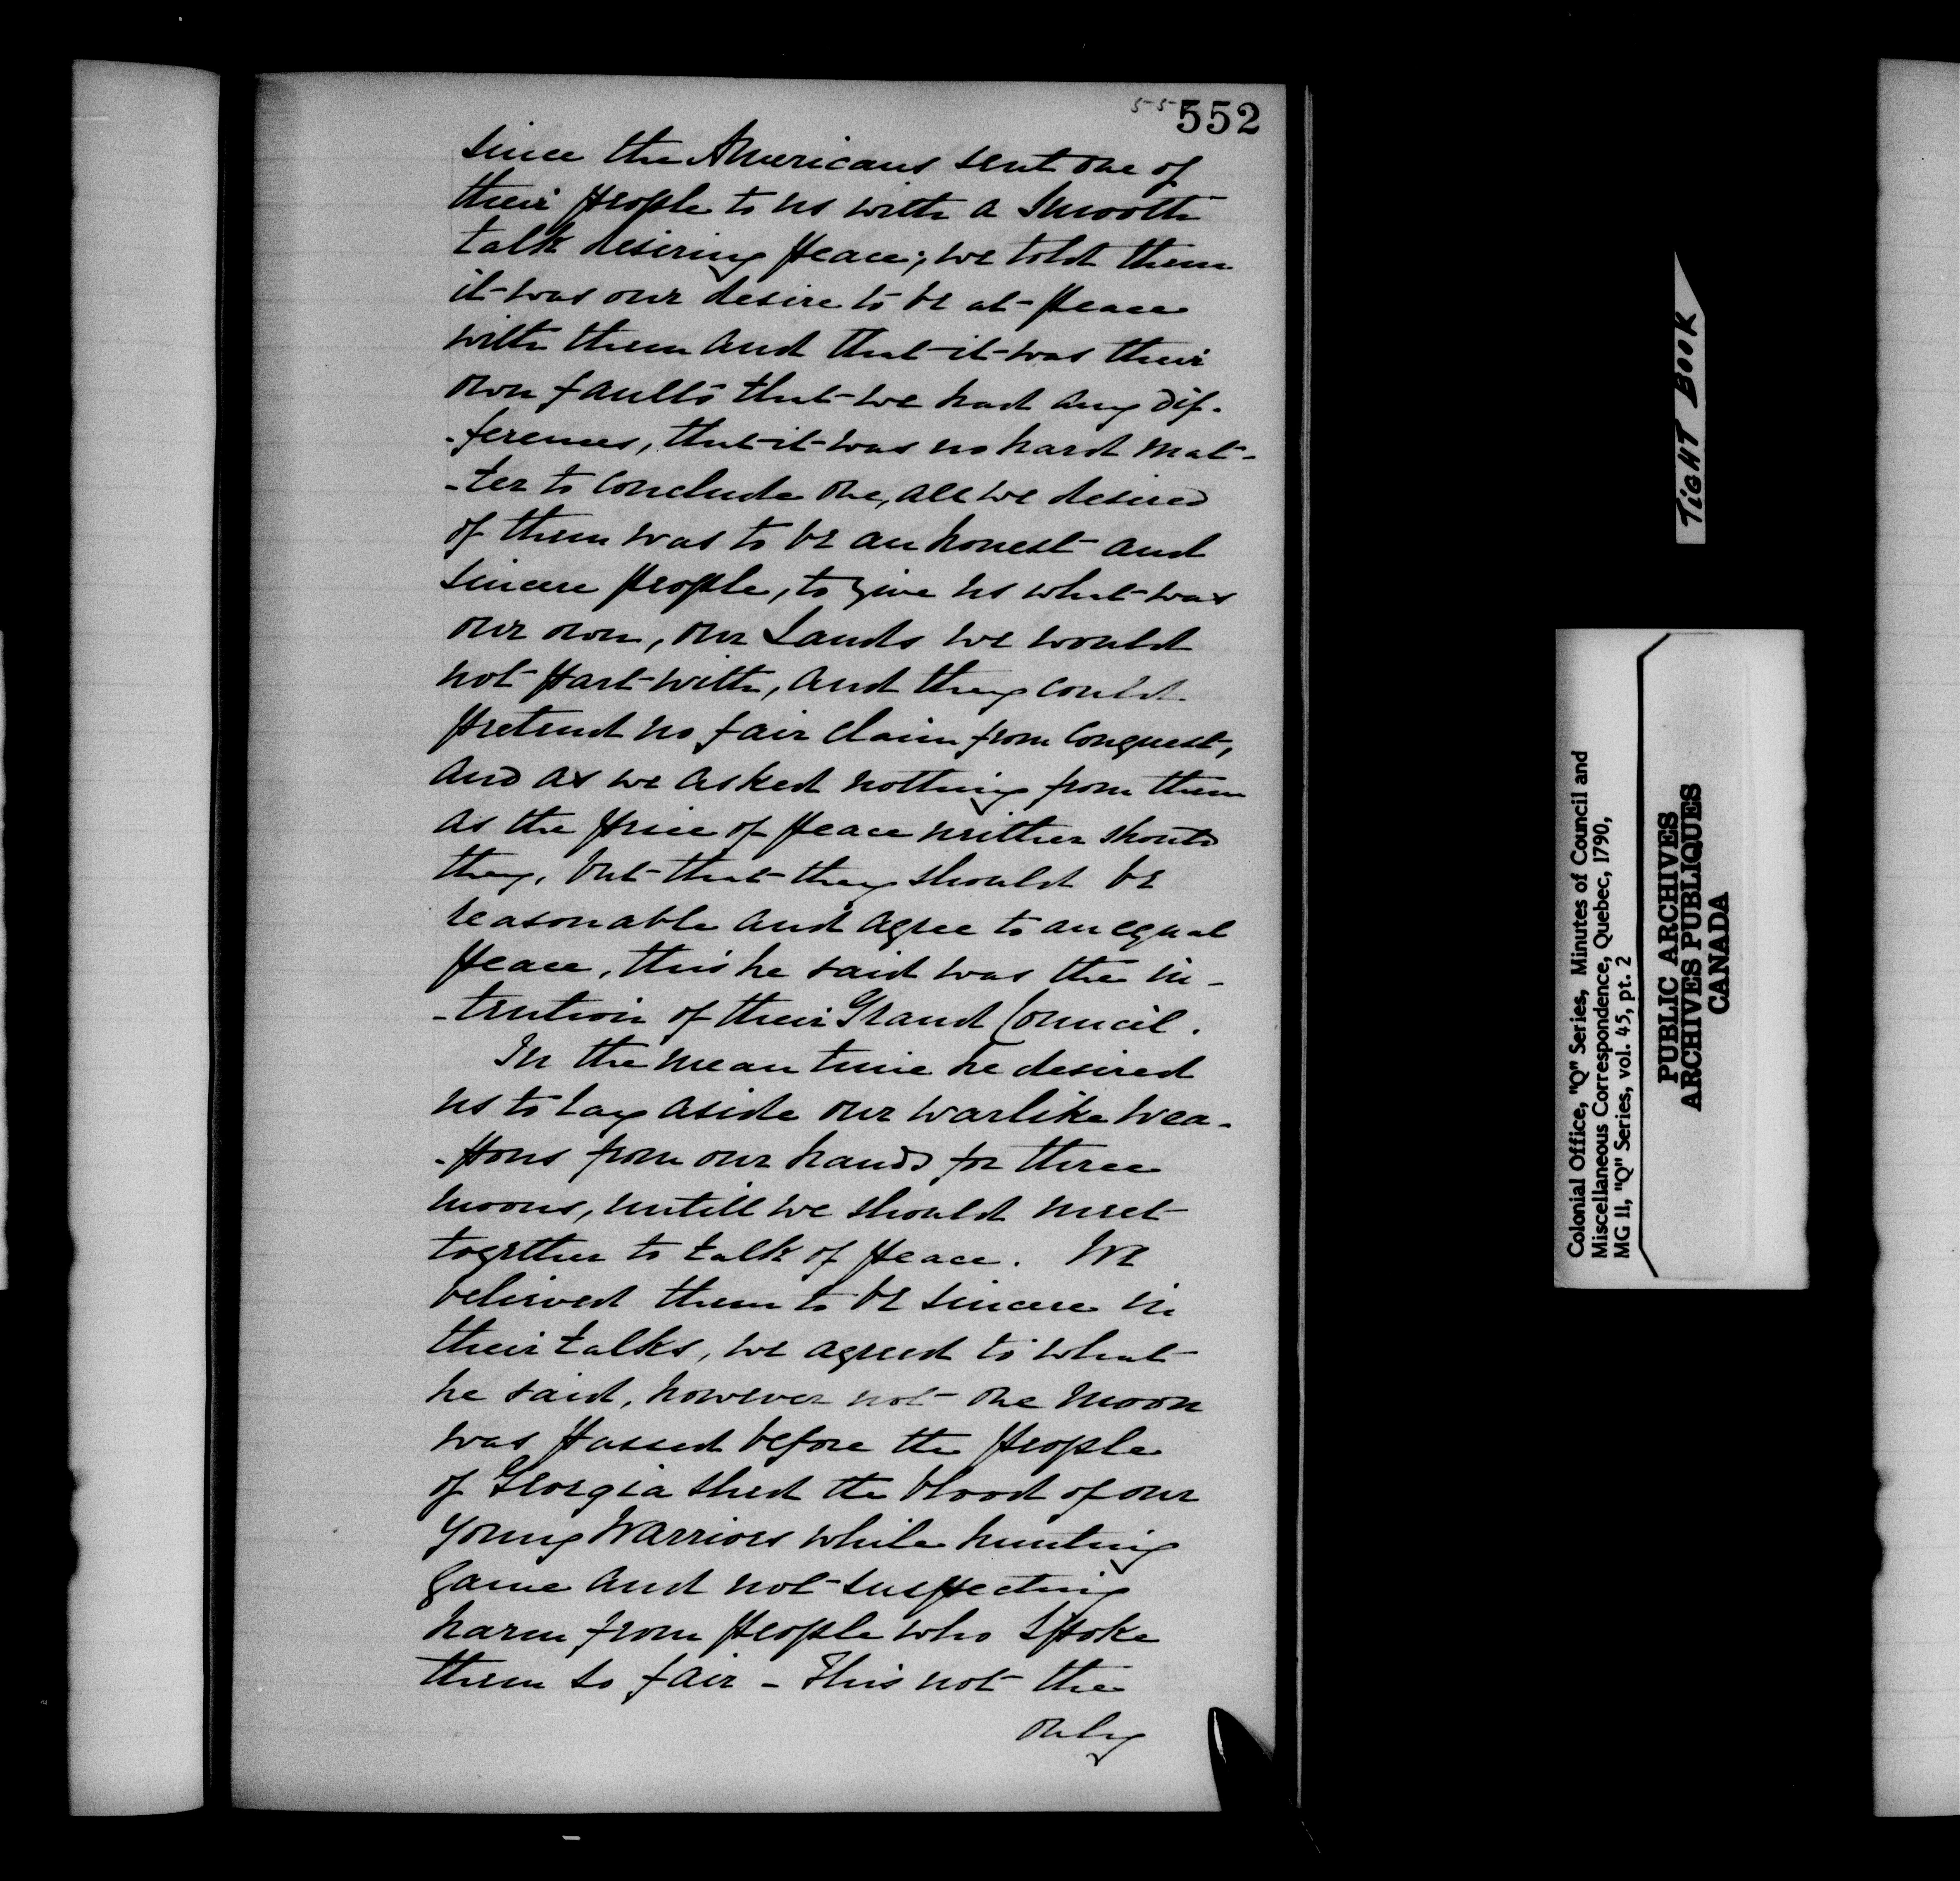 55 552
since the Americans sent one of
their people to us with a smooth
talk desiring peace; we told them
it was our desire to be at peace
with them and that it was their
own faults that we had any dif-
-ferences, that it was no hard mat-
-ter to conclude one, all we desired
of them was to be an honest and
sincere people, to give us what was
our own, our Lands we would
not part with, and they could
pretend no fair claim from Conquest,
and as we asked nothing from them
as the price of peace neither should
they, but that they should be
reasonable and agree to an equal
peace, this he said was the in-
-tention of their Grand Council.
In the mean time he desired
us to lay aside our warlike wea-
-pons from our hands for three
moons, untill we should meet
together to talk of peace. We
believed them to be sincere in
their talks, we agreed to what
he said, however not one moon
was passed before the people
of Georgia shed the blood of our
young Warriors while hunting
game and not suspecting
harm from people who spoke
them so fair - This not the
only
TIGHT BOOK
Colonial Office, "Q" Series, Minutes of Council and
Miscellaneous Correspondence, Quebec, 1790,
MG 11, "Q" Series, vol. 45, pt. 2
PUBLIC ARCHIVES
ARCHIVES PUBLIQUES
CANADA